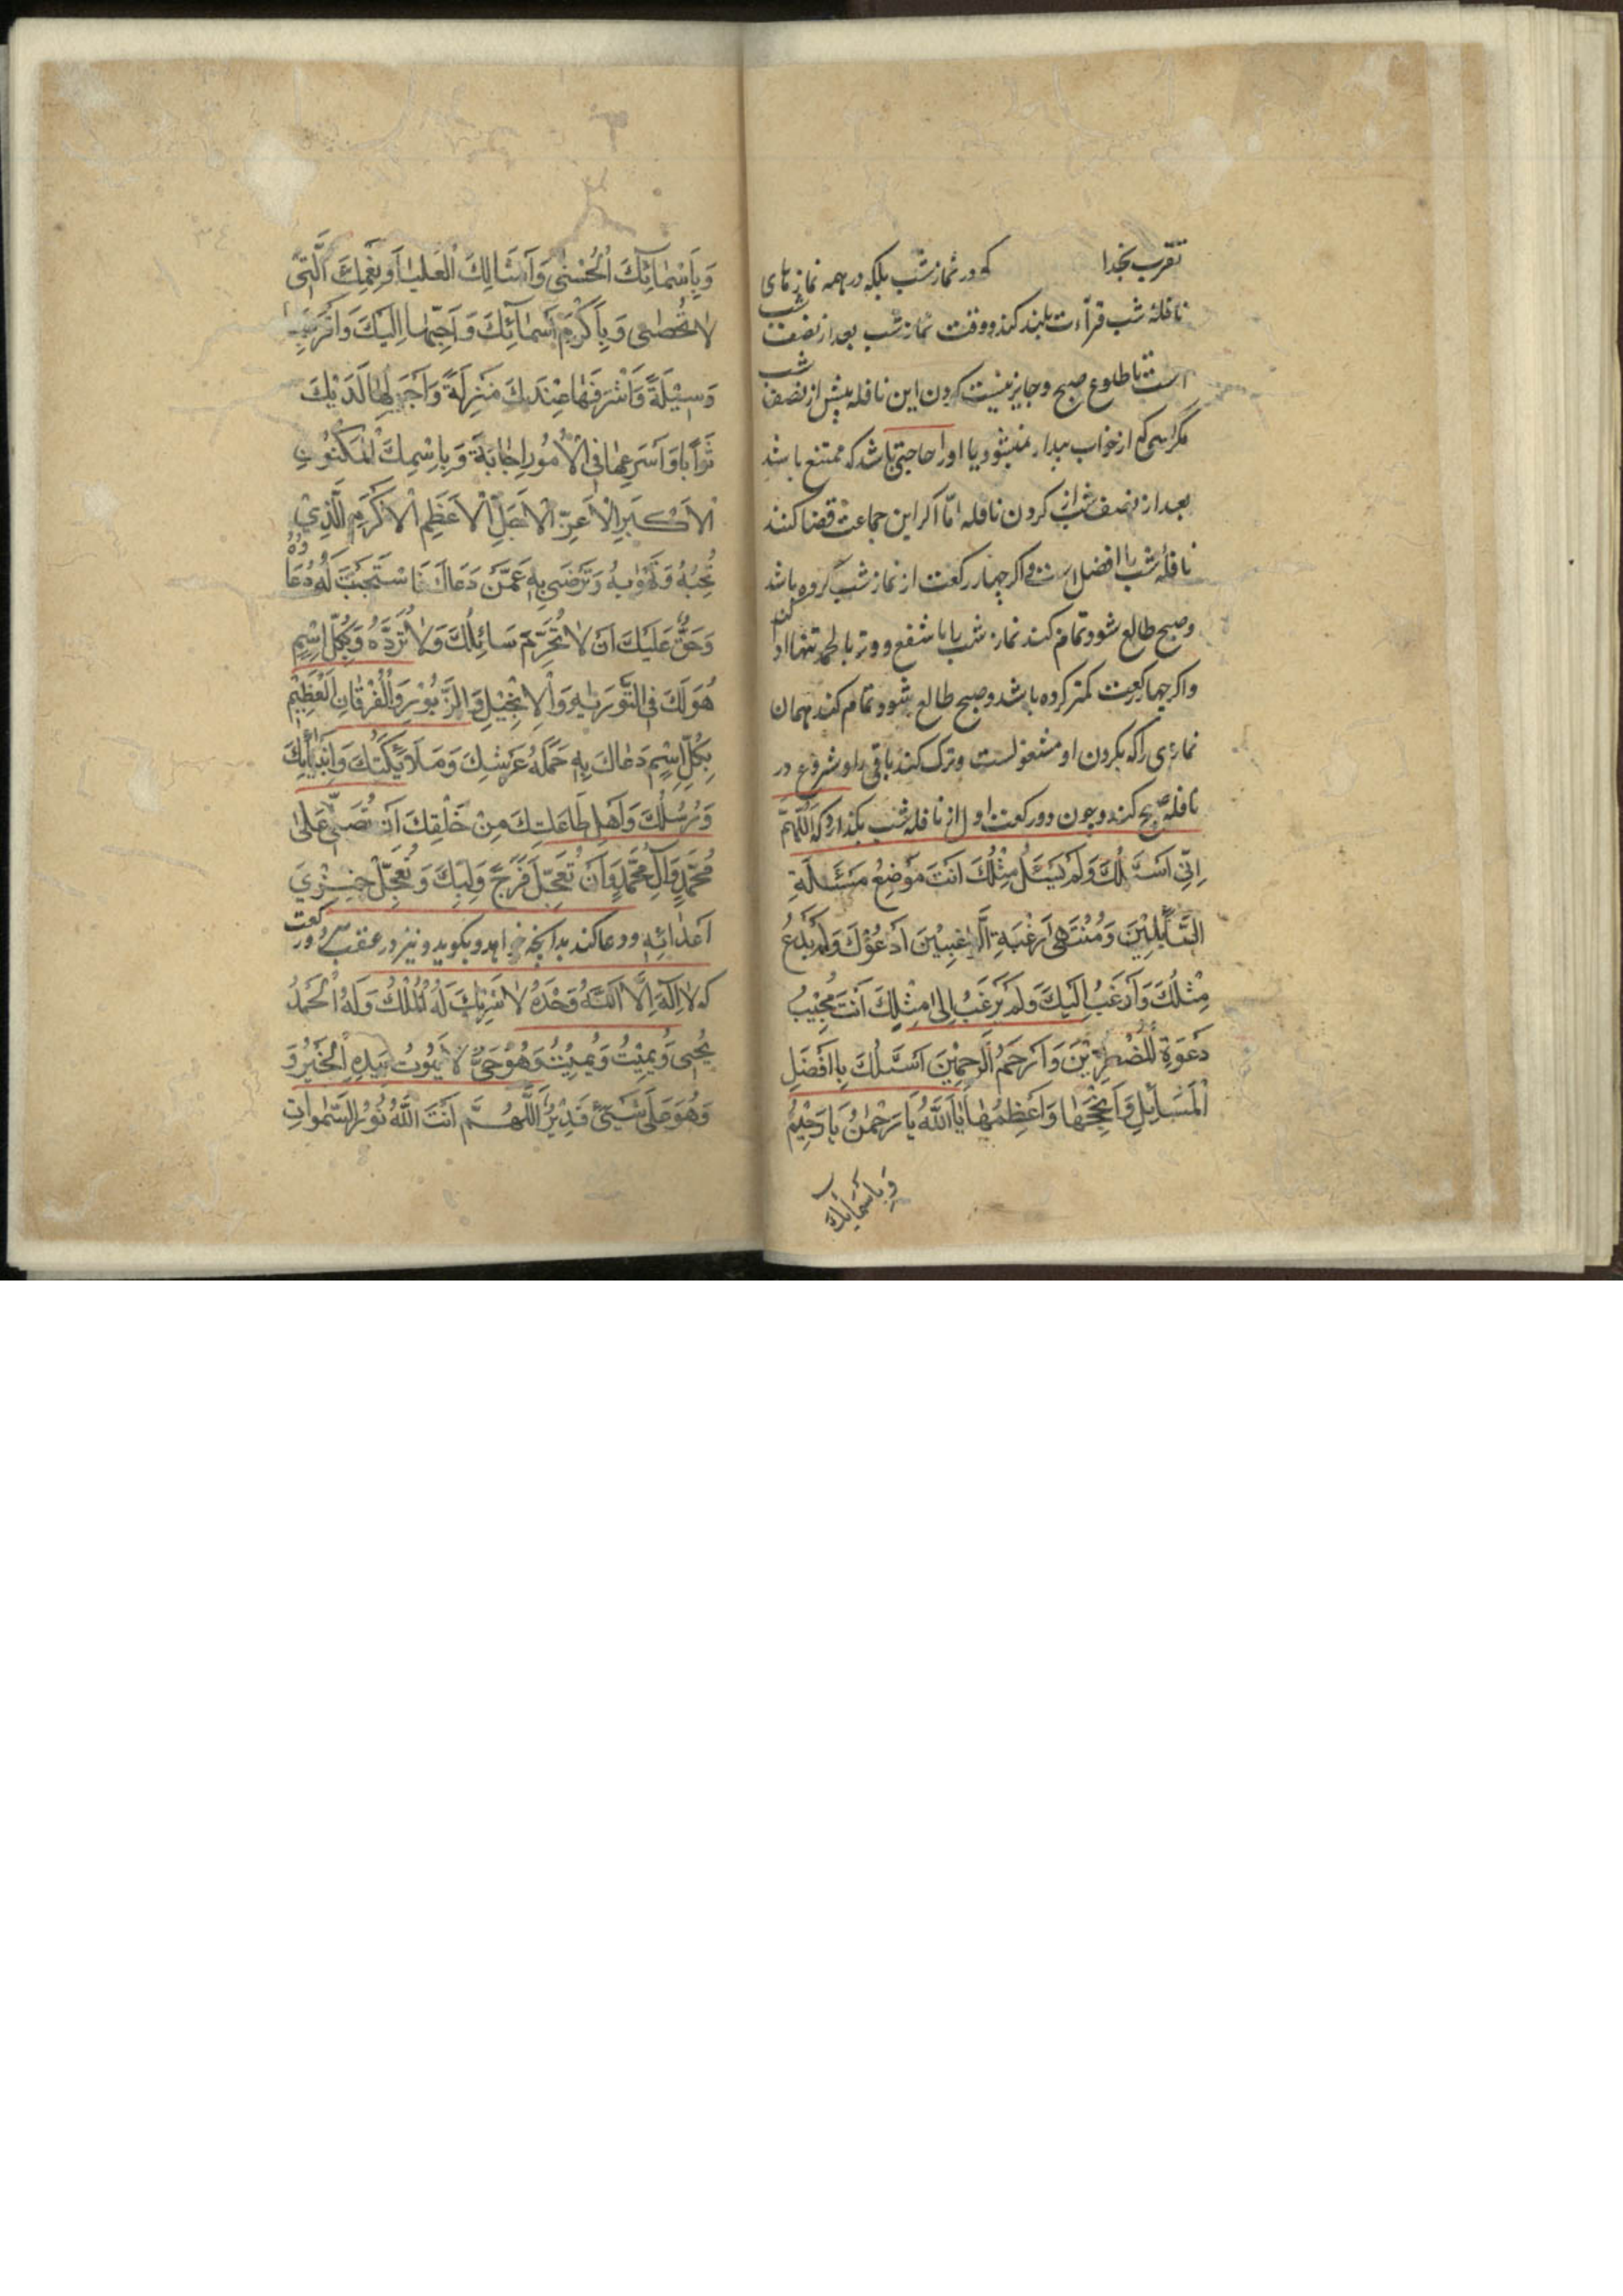 تقرب بخدا که در نماز شب بلکه در همه نمازهای
نافلهٔ شب قرائت بلند کند و وقت نماز شب بعد از نصف شب
است تا طلوع صبح و جایز نیست کردن این نافله پیش از نصف شب
مکر کسی که از خواب بیدار نمیشود یا او را حاجتی باشد که ممتنع باشد
بعد از نصف شب از کردن نافله امّا اکر این جماعت قضا کنند
نافلهٔ شب را افضل است و اکر چهار رکعت از نماز شب کرده باشد
و صبح طالع شود تمام کند نماز شب را با شفع و وتر با الحمد تنها ادا کند
و اکر چهار رکعت کمتر کرده باشد و صبح طالع شود تمام کند همان
نمازی را که بکردن او مشغولست و ترک کند باقی را و شروع در
نافلهٔ صبح کند و چون دو رکعت اول از نافله شب بکذارد که اَللّٰهُمَّ
اِنّی اَسْئَلُكَ وَلَمْ یُسْئَلْ مِثْلُكَ اَنْتَ مَوْضِعُ مَسْئَلَةِ
السّٰٓائِلِیْنَ وَمُنْتَهٰی رَغْبَةِ الرّٰاغِبِیْنَ اَدْعُوْكَ وَلَمْ یُدْعَ
مِثْلُكَ وَاَرْغَبُ اِلَیْكَ وَلَمْ یُرْغَبْ اِلٰی مِثْلِكَ اَنْتَ مُجِیْبُ
دَعْوَةِ الْمُضْطَرِّیْنَ وَاَرْحَمُ الرّٰحِمِیْنَ اَسْئَلُكَ بِاَفْضَلِ
الْمَسَائِلِ وَاَنْجَحِهٰا وَاَعْظَمِهٰا یٰا اَللّٰهُ یٰا رَحْمٰنُ یٰا رَحِیْمُ
وَبِاَسْمٰائِكَ
وَبِاَسْمٰائِكَ الْحُسْنٰی وَاَمْثَالِكَ الْعُلْیٰا وَنِعَمِكَ الَّتِی
لاٰ تُحْصٰی وَبِاَكْرَمِ اَسْمٰائِكَ وَاَحَبِّهٰا اِلَیْكَ وَاَقْرَبِهٰا
وَسِیْلَةً وَاَشْرَفِهٰا عِنْدَكَ مَنْزِلَةً وَاَجْزَلِهٰا لَدَیْكَ
ثَوٰاباً وَاَسْرَعِهٰا فِی الْاُمُوْرِ اِجٰابَةً وَبِاسْمِكَ الْمَكْنُوْنِ
الْاَكْبَرِ الْاَعَزِّ الْاَجَلِّ الْاَعْظَمِ الْاَكْرَمِ الَّذِیْ
تُحِبُّهُ وَتَهْوٰاهُ وَتَرْضٰی بِهِ عَمَّنْ دَعَاكَ فَاسْتَجَبْتَ لَهُ دُعَاءَهُ
وَحَقٌّ عَلَیْكَ اَنْ لاٰ تُحَرِّمَ سَائِلَكَ وَلاٰ تَرُدَّهُ وَبِكُلِّ اسْمٍ
هُوَ لَكَ فِی التَّوْرٰیةِ وَالْاِنْجِیْلِ وَالزَّبُوْرِ وَالْفُرْقٰانِ الْعَظِیْمِ
بِكُلِّ اسْمٍ دَعٰاكَ بِهِ حَمَلَةُ عَرْشِكَ وَمَلاٰئِكَتُكَ وَاَنْبِیٰائُكَ
وَرُسُلُكَ وَاَهْلُ طَاعَتِكَ مِنْ خَلْقِكَ اَنْ تُصَلِّیَ عَلٰی
مُحَمَّدٍ وَآلِ مُحَمَّدٍ وَاَنْ تُعَجِّلَ فَرَجَ وَلِیِّكَ وَتُعَجِّلَ خِزْیَ
اَعْدٰائِهِ و دعا کند بدانچه خواهد و بکوید و نیز در عقب هر دو رکعت
که لاٰ اِلٰهَ اِلَّا اللّٰهُ وَحْدَهُ لاٰ شَرِیْكَ لَهُ لَهُ الْمُلْكُ وَلَهُ الْحَمْدُ
یُحْیِی وَیُمِیْتُ وَیُمِیْتُ وَهُوَ حَیٌّ لاٰ یَمُوْتُ بِیَدِهِ الْخَیْرُ وَ
وَهُوَ عَلٰی شَیْئٍ قَدِیْرٌ اَللّٰهُمَّ اَنْتَ اللّٰهُ نُوْرُ السَّمٰوٰاتِ